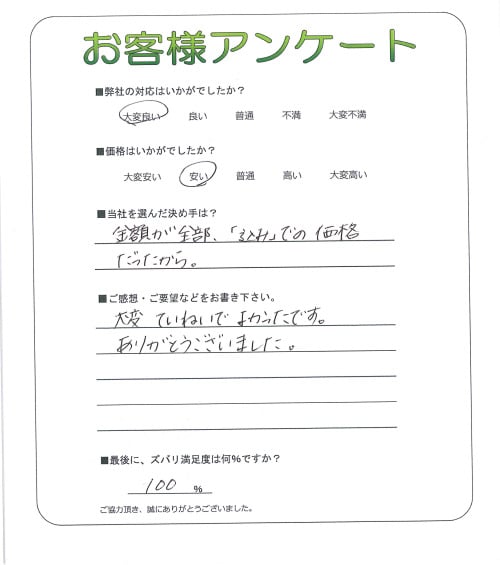 お客様アンケート
■弊社の対応はいかがでしたか？
大変良い 良い 普通 不満 大変不満
■価格はいかがでしたか？
大変安い 安い 普通 高い 大変高い
■当社を選んだ決め手は？
金額が全部、「込み」での価格
だったから。
■ご感想・ご要望などをお書き下さい。
大変 ていねいで よかったです。
ありがとうございました。
■最後に、ズバリ満足度は何％ですか？
100 %
ご協力頂き、誠にありがとうございました。